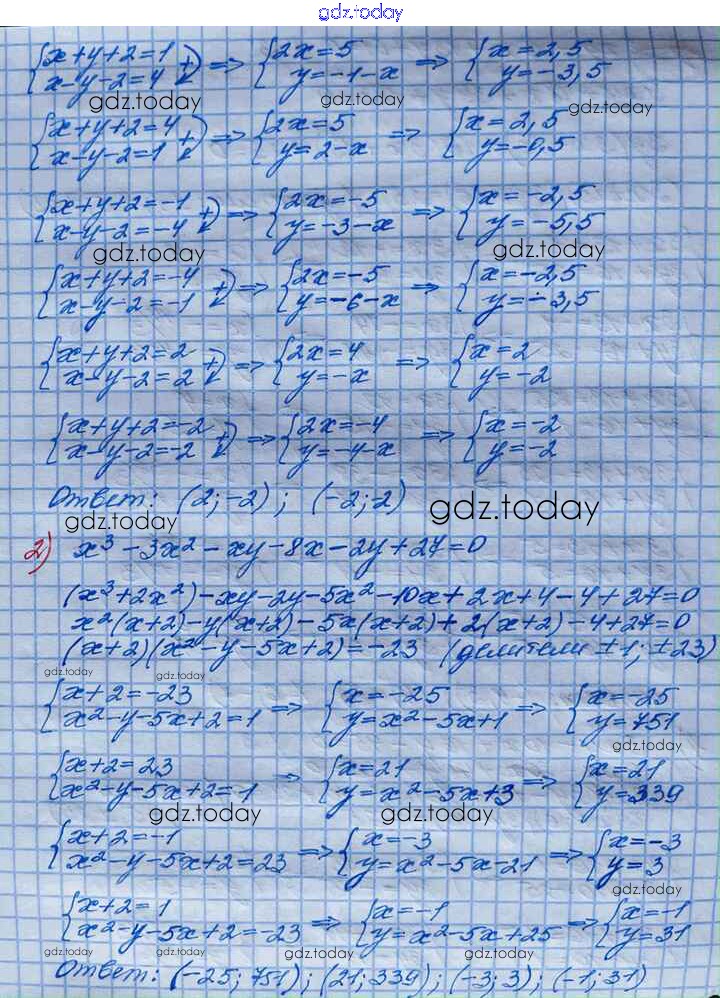 gdz.today
{x+y+2=1 x-y-2=4 +) => {2x=5 y=-1-x => {x=2,5 y=-3,5
gdz.today gdz.today gdz.today
{x+y+2=4 x-y-2=1 +) => {2x=5 y=2-x => {x=2,5 y=-0,5
{x+y+2=-1 x-y-2=-4 +) => {2x=-5 y=-3-x => {x=-2,5 y=-5,5
gdz.today gdz.today
{x+y+2=-4 x-y-2=-1 +) => {2x=-5 y=-6-x => {x=-2,5 y=-3,5
{x+y+2=2 x-y-2=2 +) => {2x=4 y=-x => {x=2 y=-2
{x+y+2=-2 x-y-2=-2 +) => {2x=-4 y=-4-x => {x=-2 y=-2
Ответ: (2;-2); (-2;-2)
gdz.today gdz.today
2) x³-3x²-xy-8x-2y+27=0
(x³+2x²)-xy-2y-5x²-10x+2x+4-4+27=0
x²(x+2)-y(x+2)-5x(x+2)+2(x+2)-4+27=0
(x+2)(x²-y-5x+2)=-23 (делители ±1; ±23)
gdz.today gdz.today
{x+2=-23 x²-y-5x+2=1 => {x=-25 y=x²-5x+1 => {x=-25 y=751
gdz.today
{x+2=23 x²-y-5x+2=-1 => {x=21 y=x²-5x+3 => {x=21 y=339
gdz.today gdz.today
{x+2=-1 x²-y-5x+2=23 => {x=-3 y=x²-5x-21 => {x=-3 y=3
gdz.today
{x+2=1 x²-y-5x+2=-23 => {x=-1 y=x²-5x+25 => {x=-1 y=31
gdz.today gdz.today gdz.today gdz.today
Ответ: (-25; 751); (21; 339); (-3; 3); (-1; 31)